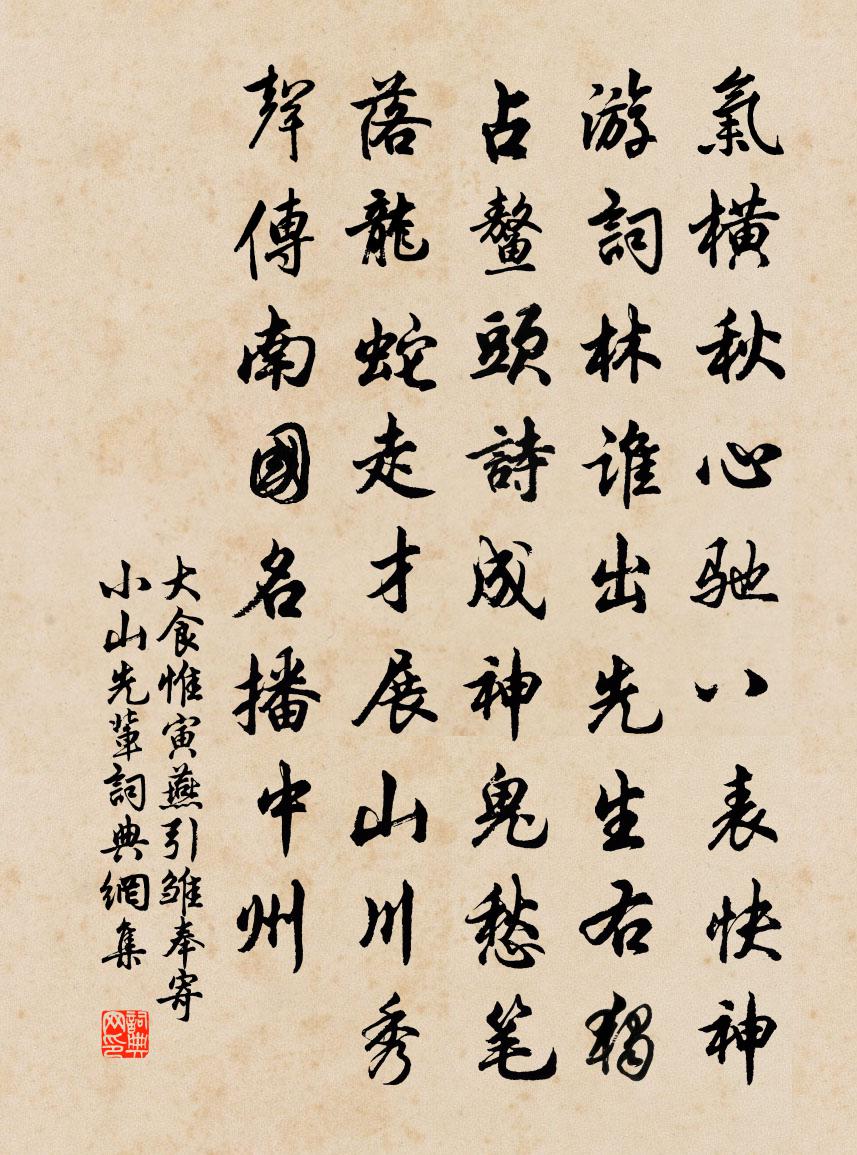 氣橫秋心馳八表快神
游詞林誰出先生右獨
占鰲頭詩成神鬼愁笔
落龍蛇走才展山川秀
聲傳南國名播中州
大食惟寅燕引雛奉寄
小山先輩詞典網集
詞典
网印